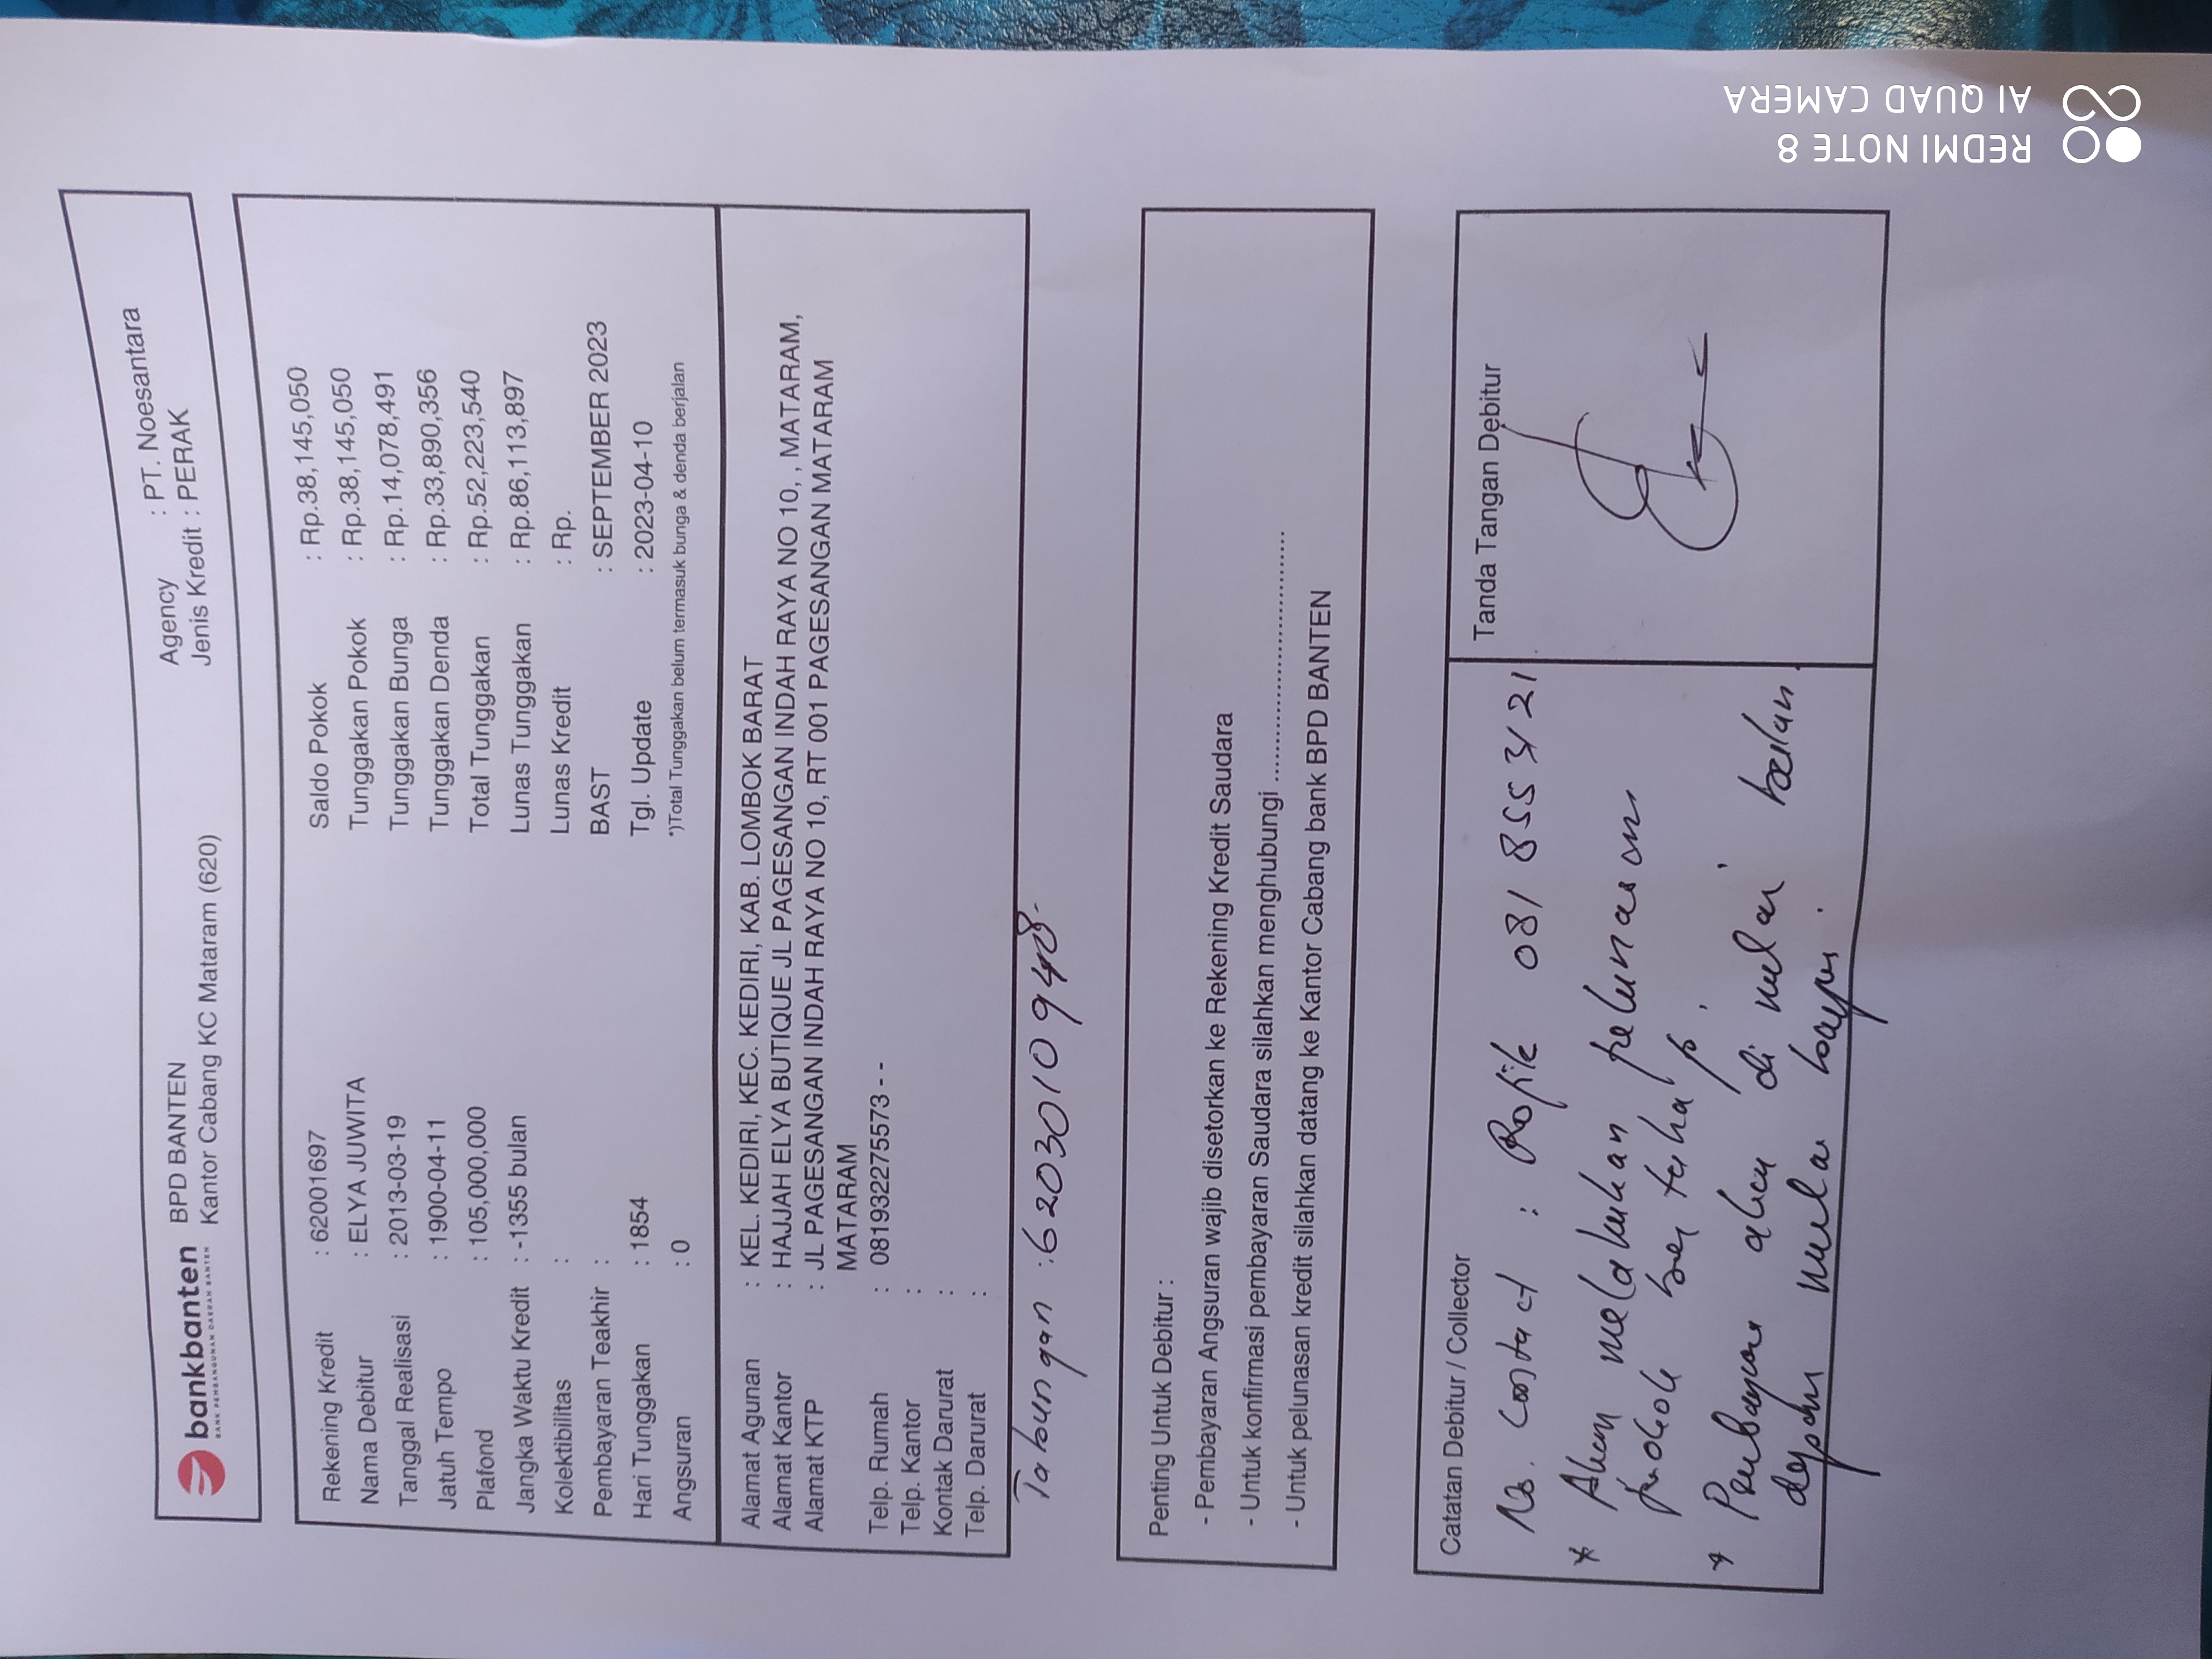 bankbanten
BANK PEMBANGUNAN DAERAH BANTEN
BPD BANTEN
Kantor Cabang KC Mataram (620)
Agency : PT. Noesantara
Jenis Kredit : PERAK
Rekening Kredit : 62001697
Nama Debitur : ELYA JUWITA
Tanggal Realisasi : 2013-03-19
Jatuh Tempo : 1900-04-11
Plafond : 105,000,000
Jangka Waktu Kredit : -1355 bulan
Kolektibilitas :
Pembayaran Teakhir :
Hari Tunggakan : 1854
Angsuran : 0
Saldo Pokok : Rp.38,145,050
Tunggakan Pokok : Rp.38,145,050
Tunggakan Bunga : Rp.14,078,491
Tunggakan Denda : Rp.33,890,356
Total Tunggakan : Rp.52,223,540
Lunas Tunggakan : Rp.86,113,897
Lunas Kredit : Rp.
BAST : SEPTEMBER 2023
Tgl. Update : 2023-04-10
*)Total Tunggakan belum termasuk bunga & denda berjalan
Alamat Agunan : KEL. KEDIRI, KEC. KEDIRI, KAB. LOMBOK BARAT
Alamat Kantor : HAJJAH ELYA BUTIQUE JL PAGESANGAN INDAH RAYA NO 10, , MATARAM,
Alamat KTP : JL PAGESANGAN INDAH RAYA NO 10, RT 001 PAGESANGAN MATARAM
MATARAM
Telp. Rumah : 081932275573 - -
Telp. Kantor :
Kontak Darurat :
Telp. Darurat :
Tabungan : 6203010948-
Penting Untuk Debitur :
- Pembayaran Angsuran wajib disetorkan ke Rekening Kredit Saudara
- Untuk konfirmasi pembayaran Saudara silahkan menghubungi ........................................
- Untuk pelunasan kredit silahkan datang ke Kantor Cabang bank BPD BANTEN
Catatan Debitur / Collector
No. Contact : 081 855 3121
* Akan melakukan pelunasan
pokok bertahap.
* Pembayaran akan di mulai bulan
depan mulai
Tanda Tangan Debitur
REDMI NOTE 8
AI QUAD CAMERA